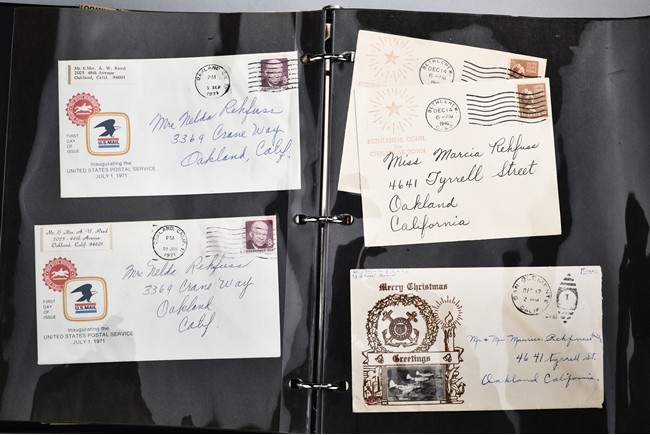 Mr. & Mrs. A. W. Reed
2025 48th Avenue
Oakland, Calif. 94601
OAKLAND, CA
PM
1971
FIRST
DAY
OF
ISSUE
U.S.MAIL
Inaugurating the
UNITED STATES POSTAL SERVICE
JULY 1, 1971
Mrs Nelda Rehfuss
3369 Crane Way
Oakland, Calif.
Mr. & Mrs. A. W. Reed
2025 - 48th Avenue
Oakland, Calif. 94601
OAKLAND, CALIF
PM
1971
FIRST
DAY
OF
ISSUE
U.S.MAIL
Inaugurating the
UNITED STATES POSTAL SERVICE
JULY 1, 1971
Mrs Nelda Rehfuss
3369 Crane Way
Oakland
Calif.
BETHLEHEM
DEC 14
1940
BETHLEHEM
DEC 14
1940
CONN.
BETHLEHEM, CONN.
CHRISTMAS TOWN
Miss Marcia Rehfuss
4641 Tyrrell Street
Oakland
California
Merry Christmas
Greetings
SAN CLEMENTE
DEC 17
2 PM
CALIF.
1
Mr & Mrs Maurice Rehfuss
4641 Tyrrell St.
Oakland California.